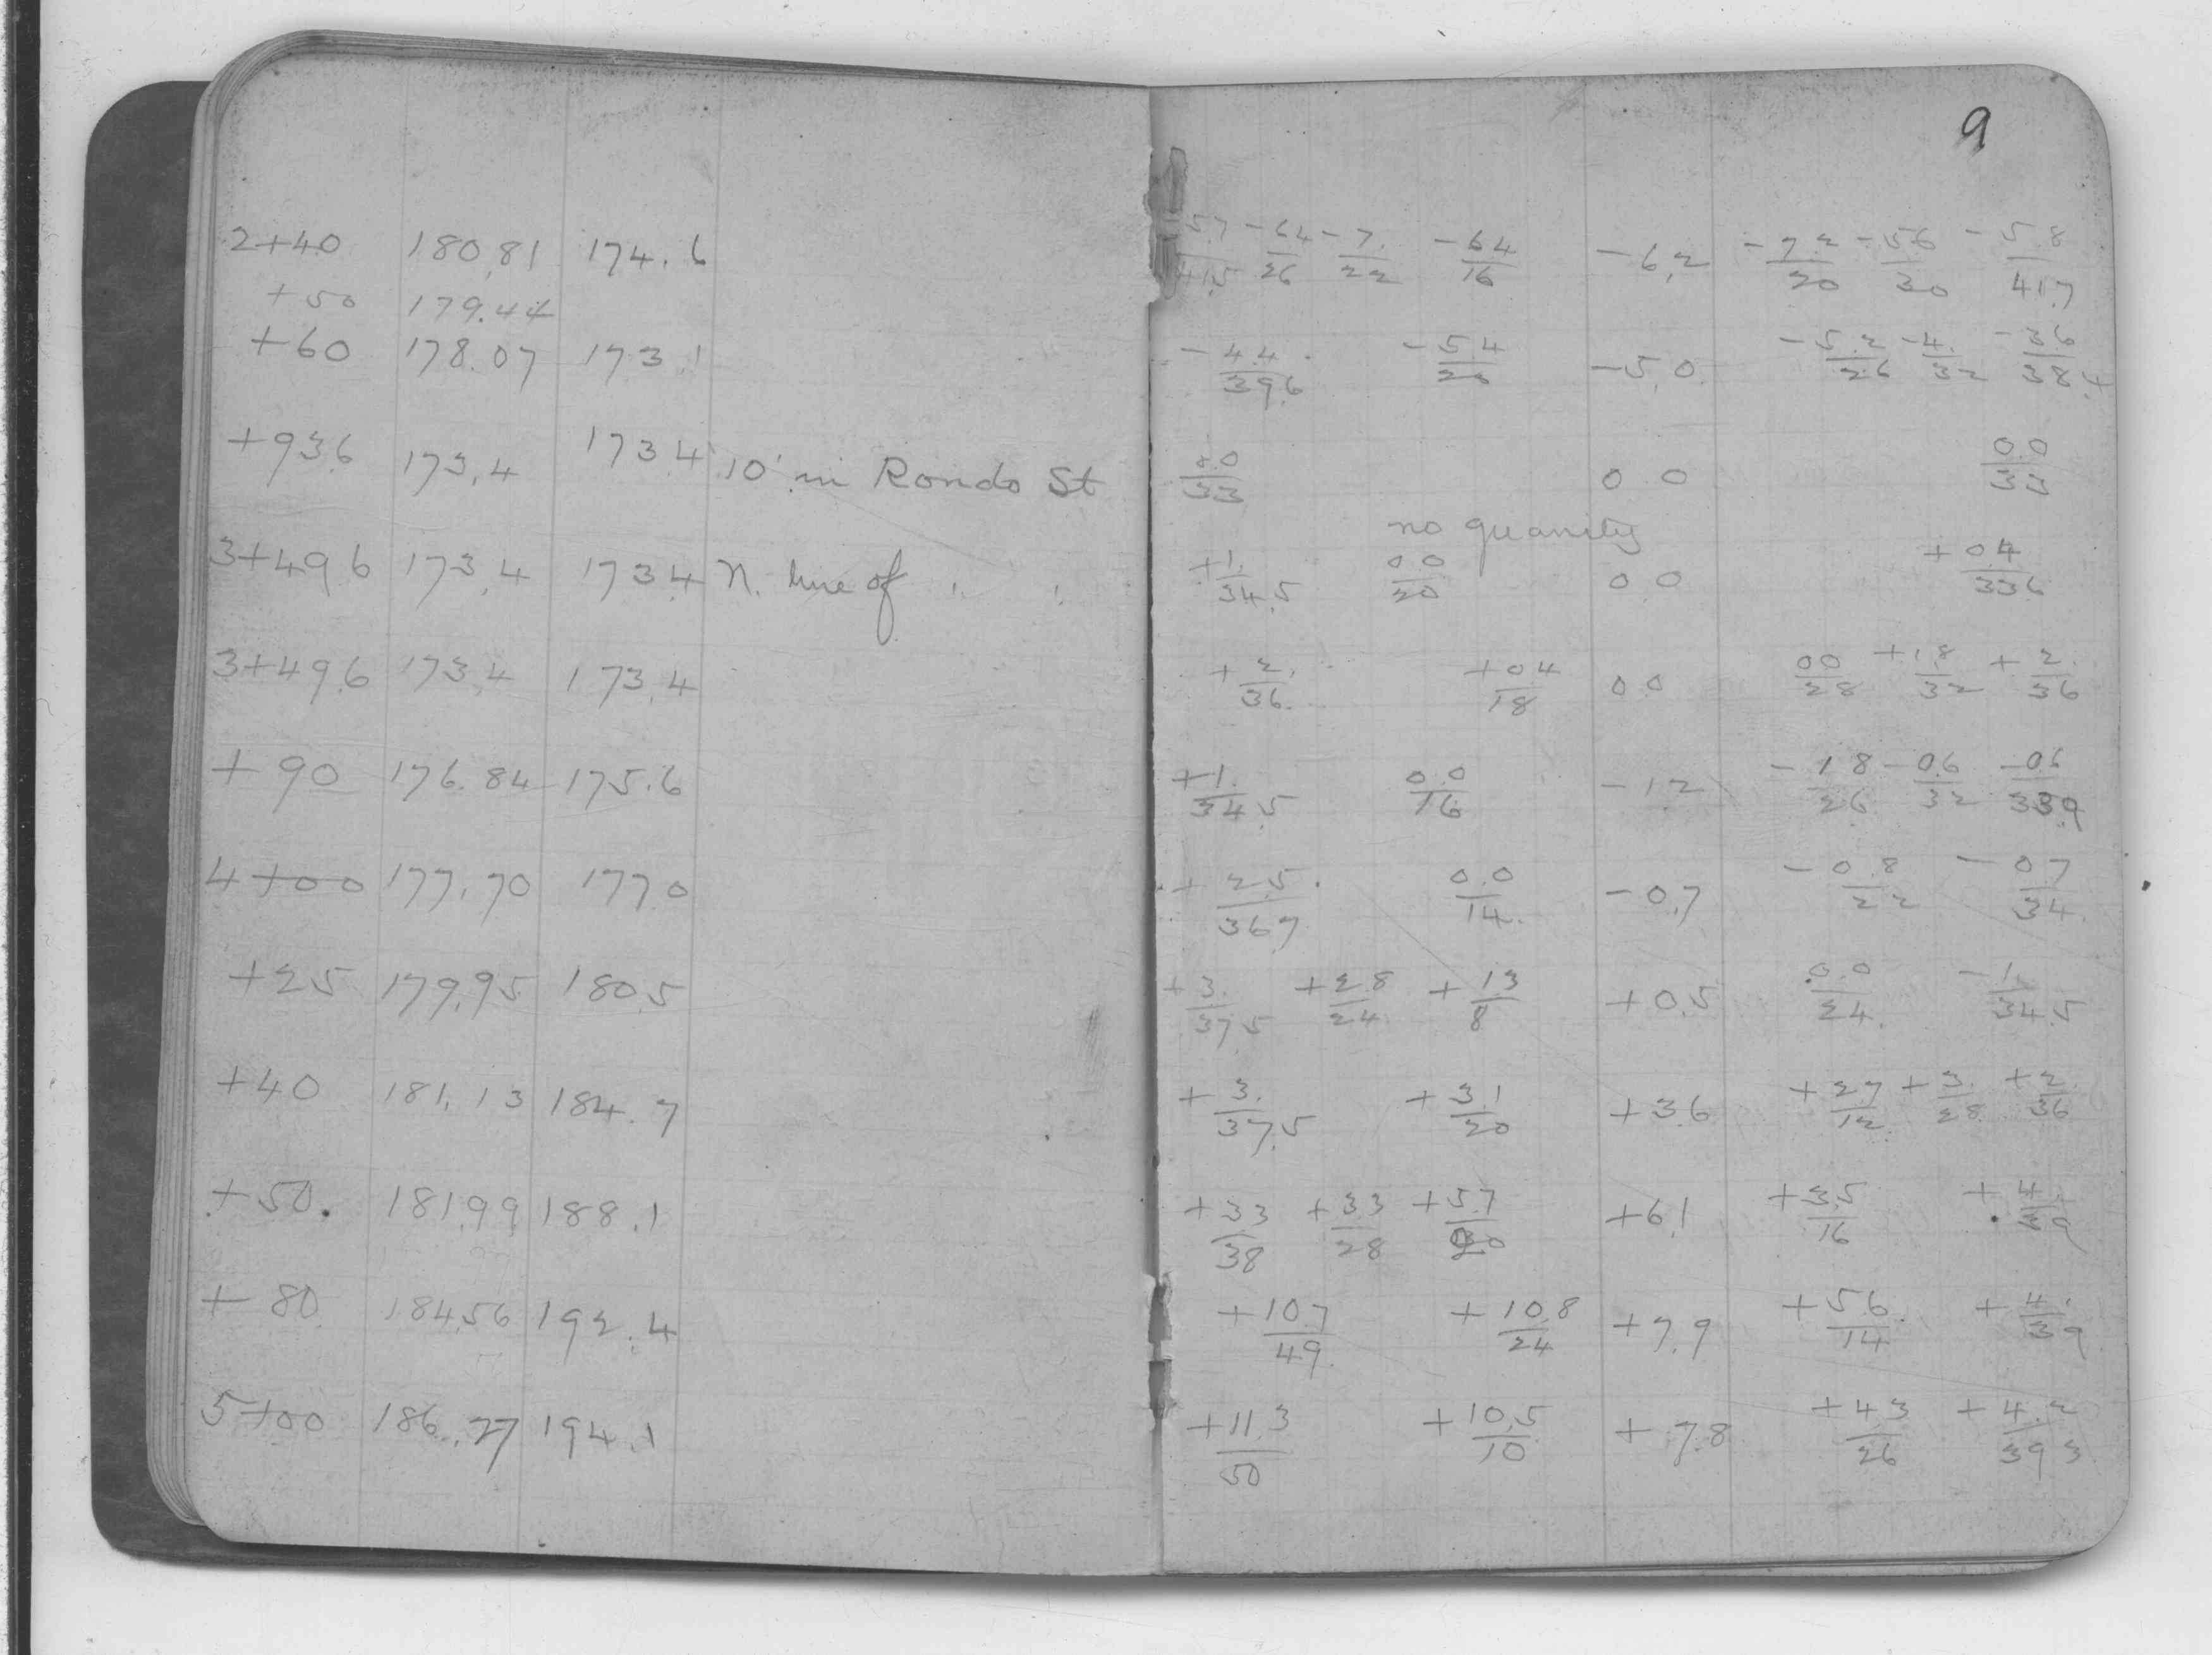 9
2+40 180.81 174.6 -5.7/41.5 -6.4/26 -7./22 -6.4/16 -6.2 -7.2/20 -5.6/30 -5.8/41.7
+50 179.44
+60 178.07 173.1 -4.4/39.6 -5.4/20 -5.0 -5.2/26 -4./32 -3.6/38.4
+93.6 173.4 173.4 10' in Rondo St 0.0/33 0.0 0.0/33
no quanity
3+49.6 173.4 173.4 N. line of " " +1./34.5 0.0/20 0.0 +0.4/33.6
3+49.6 173.4 173.4 +2./36. +0.4/18 0.0 0.0/28 +1.8/32 +2./36
+90 176.84 175.6 +1./34.5 0.0/16 -1.2 -1.8/26 -0.6/32 -0.6/33.9
4+00 177.70 177.0 +2.5/36.7 0.0/14. -0.7 -0.8/22 -0.7/34.
+25 179.95 180.5 +3./37.5 +2.8/24 +1.3/8 +0.5 0.0/24. -1./34.5
+40 181.13 184.7 +3./37.5 +3.1/20 +3.6 +2.7/12 +3./28 +2./36
+50. 181.99 188.1 +3.3/38 +3.3/28 +5.7/20 +6.1 +3.5/16 +4./39
+80 184.56 192.4 +10.7/49. +10.8/24 +7.9 +5.6/14 +4./39
5+00 186.27 194.1 +11.3/50 +10.5/10 +7.8 +4.3/26 +4.2/39.3